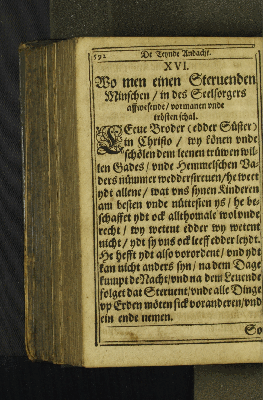 592
De Teynde Andacht.
XVI.
Wo men einen Steruenden
Minschen / in des Seelsorgers
affwesende / vormanen vnde
trösten schal.
LEeue Broder (edder Süster)
in Christo / wy könen vnde
schölen dem leeuen trüwen wil-
len Gades / vnde Hemmelschen Va-
ders nümmer weddersireuen / he weet
ydt allent / wat vns synen Kinderen
am besten vnde nüttesten ys / he be-
schaffet ydt ock allthomale wol vnde
recht / wy weten edder wy weten
nicht / ydt sy vns ock leeff edder leydt.
He hefft ydt also vorordent / vnd ydt
kan nicht anders syn / na dem Dage
kumpt de Nacht / vnd na dem Leuende
folget dat Steruent / vnde alle Dinge
vp Erden möten sick voranderen / vnd
ein ende nemen.
So